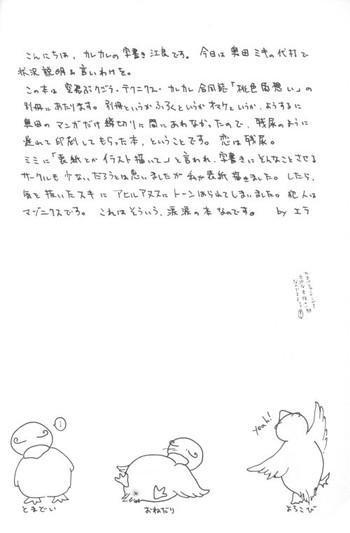 こんにちは、カレカレの字書き江良です。今日は奥田ミキの代打で
状況説明&言いわけを。
この本は 空君ぷクゾラ・テクニクス・カレカレ 合同誌「桃色両想い」の
別冊にあたります。別冊というかふろくというかオマケというか、ようするに
奥田の マンガだけ締切りに間にあわなかったので、残尿のように
遅れて印刷してもらった本、ということです。恋は残尿。
ミミに「表紙とかイラスト描いて」と言われ、字書きにこんなことさせる
サークルも少ないだろうとは思いましたが 私が表紙描きました。したら、
気を抜いたスキに アヒルアヌスにトーンはられてしまいました。犯人は
マゾニクスです。 これはそういう、涙涙の本なのです。 by エラ
yeah!
とまどい
おねだり
よろこび